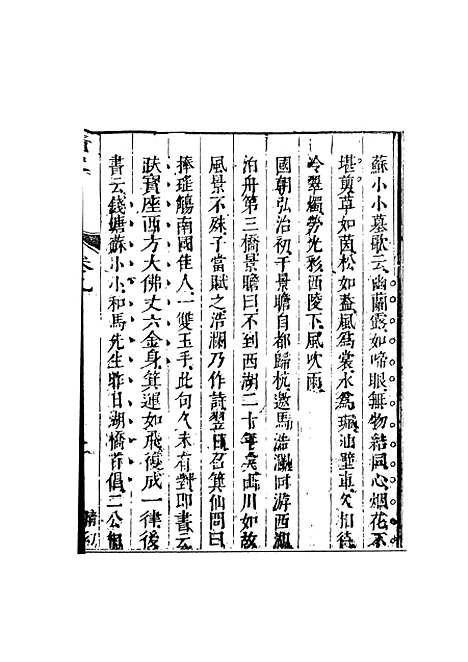 蘇小小墓歌云幽蘭露如啼眼無物結同心烟花不
堪剪草如茵松如蓋風為裳水為珮油壁車久相待
冷翠燭勞光彩西陵下風吹雨
國朝弘治初于景瞻自都歸杭邀馬浩瀾同游西湖
泊舟第三橋景瞻曰不到西湖二十年矣山川如故
風景不殊子當賦之浩瀾乃作詩翌日召箕仙問曰
捧瑤觴南國佳人一雙玉手此句久未有對即書云
趺寶座西方大佛丈六金身箕運如飛復成一律後
書云錢塘蘇小小和馬先生昨日湖橋首倡二公
卷